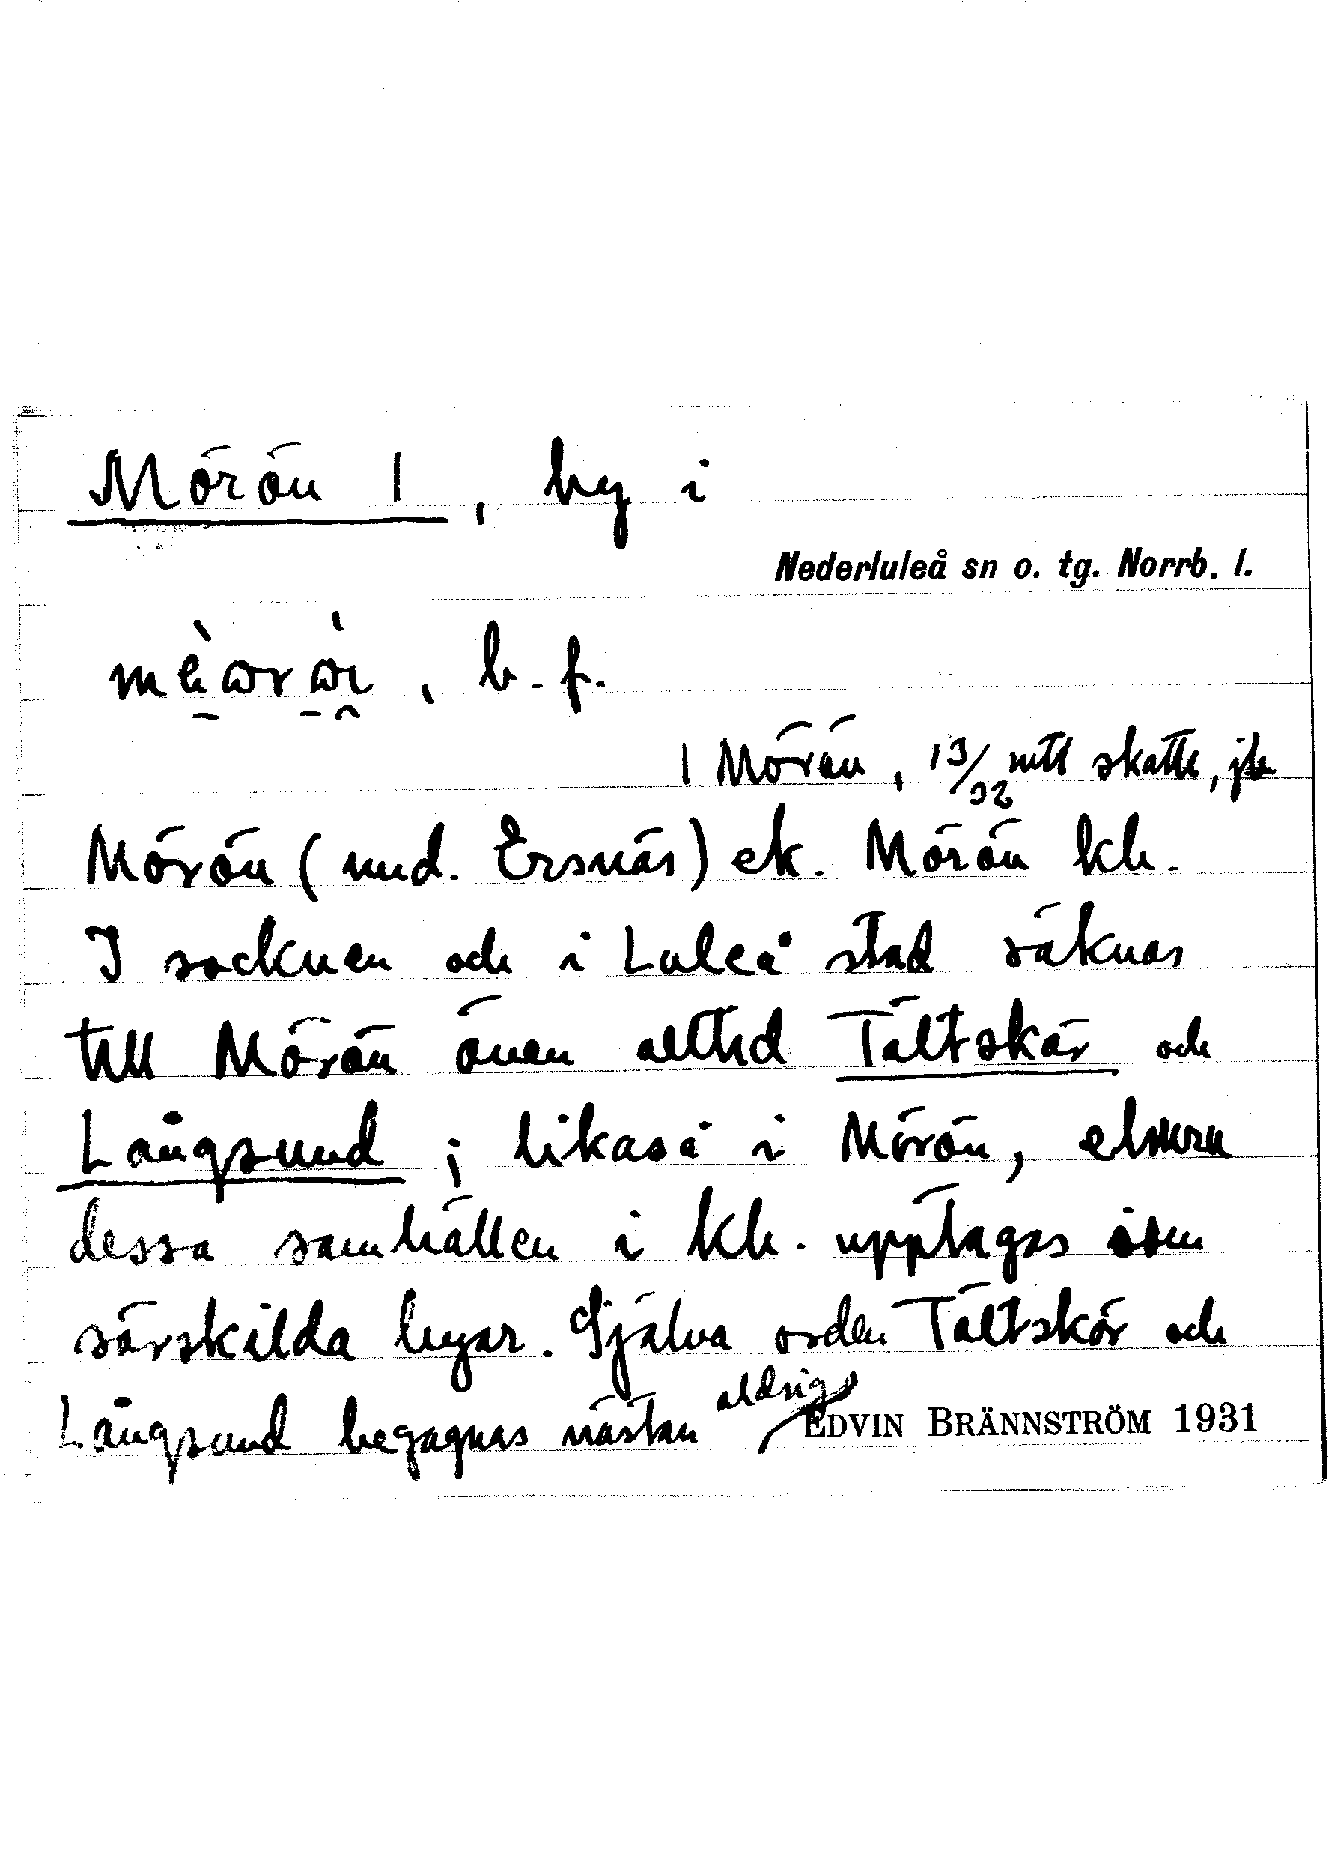 Mörön 1, by i
Nederluleå sn o. tg. Norrb. l.
b. f.
1 Mörön, 13/32 mtl skatte, jb
Mörön (und. Ersnäs) ek. Mörön kb.
I socknen och i Luleå stad räknas
till Mörön även alltid Tältskär och
Långsund; likaså i Mörön, ehuru
dessa samhällen i kb. upptagas som
särskilda byar. Själva orden Tältskär och
Långsund begagnas nästan aldrig
EDVIN BRÄNNSTRÖM 1931